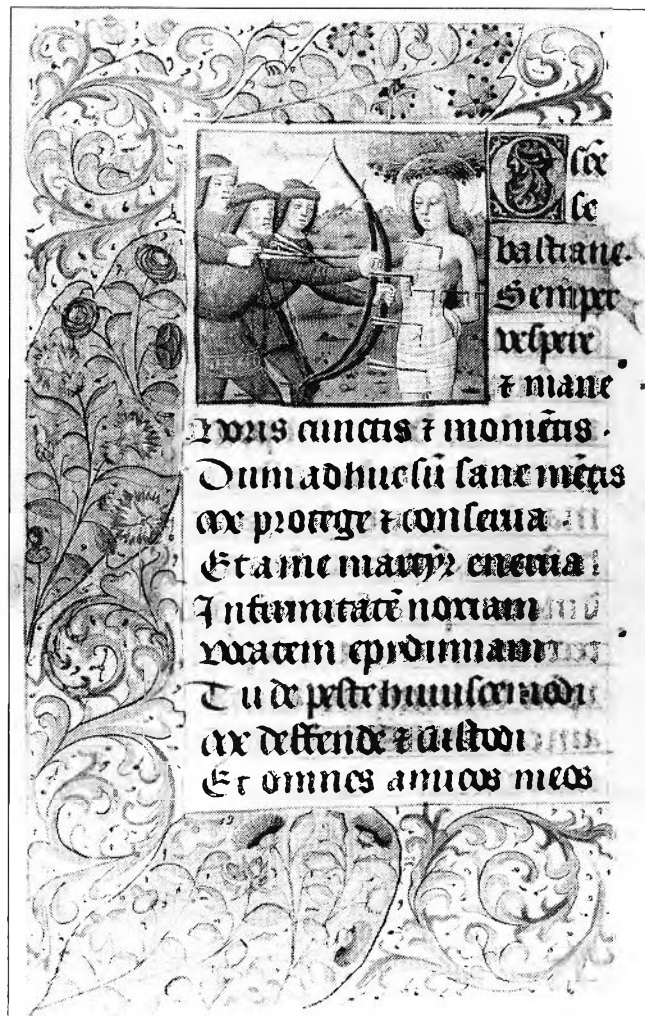 O sc̄e
se
bastiane.
Semper
vespere
⁊ mane
horis cunctis ⁊ momētis .
Dum adhuc sū sane mētis
me protege ⁊ conserua .
Et a me martyr enerua .
Infirmitatē noxiam
vocatem epidimiam
Tu de peste huiuscemodi
me deffende ⁊ custodi
Et omnes amicos meos